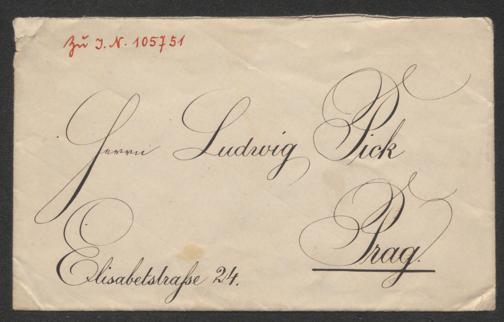 Zu I.N. 105751
Herrn Ludwig Pick
Prag.
Elisabetstraße 24.